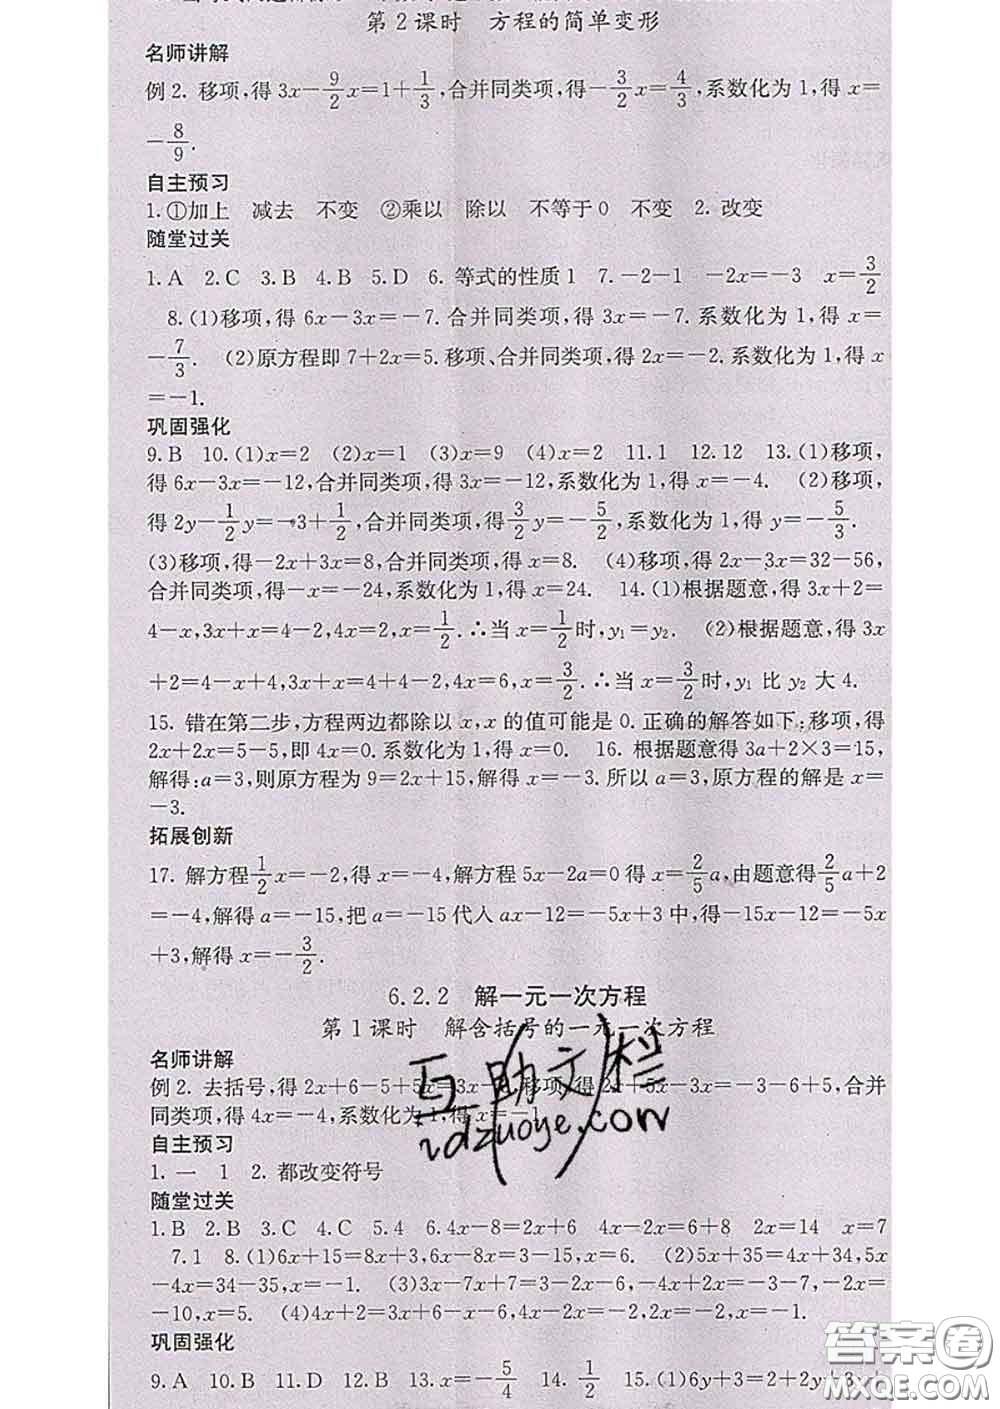 第2课时　方程的简单变形
名师讲解
例2. 移项,得3x-9/2x=1+1/3,合并同类项,得-3/2x=4/3,系数化为1,得x=
-8/9.
自主预习
1.①加上　减去　不变　②乘以　除以　不等于0　不变　2. 改变
随堂过关
1.A　2.C　3.B　4.B　5.D　6. 等式的性质1　7.-2-1　-2x=-3　x=3/2
8.(1)移项,得6x-3x=-7.合并同类项,得3x=-7.系数化为1,得x=
-7/3.　(2)原方程即7+2x=5.移项、合并同类项,得2x=-2.系数化为1,得x
=-1.
巩固强化
9.B　10.(1)x=2　(2)x=1　(3)x=9　(4)x=2　11.1　12.12　13.(1)移项,
得6x-3x=-12,合并同类项,得3x=-12,系数化为1,得x=-4.　(2)移项,
得2y-1/2y=-3+1/2,合并同类项,得3/2y=-5/2,系数化为1,得y=-5/3.
(3)移项,得-2x+3x=8,合并同类项,得x=8.　(4)移项,得2x-3x=32-56,
合并同类项,得-x=-24,系数化为1,得x=24.　14.(1)根据题意,得3x+2=
4-x,3x+x=4-2,4x=2,x=1/2.∴当x=1/2时,y₁=y₂.　(2)根据题意,得3x
+2=4-x+4,3x+x=4+4-2,4x=6,x=3/2.∴当x=3/2时,y₁比y₂大4.
15. 错在第二步,方程两边都除以x,x的值可能是0.正确的解答如下:移项,得
2x+2x=5-5,即4x=0.系数化为1,得x=0.　16. 根据题意得3a+2×3=15,
解得:a=3,则原方程为9=2x+15,解得x=-3.所以a=3,原方程的解是x=
-3.
拓展创新
17. 解方程1/2x=-2,得x=-4,解方程5x-2a=0得x=2/5a,由题意得2/5a+2
=-4,解得a=-15,把a=-15代入ax-12=-5x+3中,得-15x-12=-5x
+3,解得x=-3/2.
6.2.2　解一元一次方程
第1课时　解含括号的一元一次方程
名师讲解
例2. 去括号,得2x+6-5+5x=3x-3,移项,得2x+5x-3x=-3-6+5,合并
同类项,得4x=-4,系数化为1,得x=-1.
自主预习
1. 一　1　2. 都改变符号
随堂过关
1.B　2.B　3.C　4.C　5.4　6.4x-8=2x+6　4x-2x=6+8　2x=14　x=7
7.1　8.(1)6x+15=8x+3,6x-8x=3-15,x=6.　(2)5x+35=4x+34,5x
-4x=34-35,x=-1.　(3)3x-7x+7=3-2x-6,-4x+2x=-3-7,-2x=
-10,x=5.　(4)4x+2=3x+6-x-6,4x-2x=-2,2x=-2,x=-1.
巩固强化
9.A　10.B　11.D　12.B　13.x=-5/4　14.1/2　15.(1)6y+3=2+2y+3y+
互助文栏
zdzuoye.com
答案圈
MXQE.COM